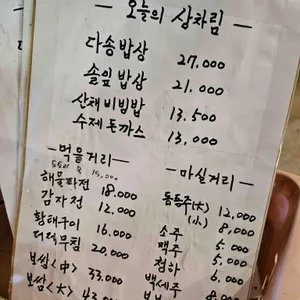 — 오늘의 상차림 —
다송밥상 27,000
솔잎밥상 21,000
산채비빔밥 13,500
수제돈까스 13,000
— 먹을거리 —
도토리묵 15,000
해물파전 18,000
감자전 12,000
황태구이 16,000
더덕무침 20,000
보쌈<中> 33,000
보쌈<大> 43,000
— 마실거리 —
동동주(大) 12,000
(小) 8,000
소주 5,000
맥주 5,000
청하 6,000
백세주 8,000